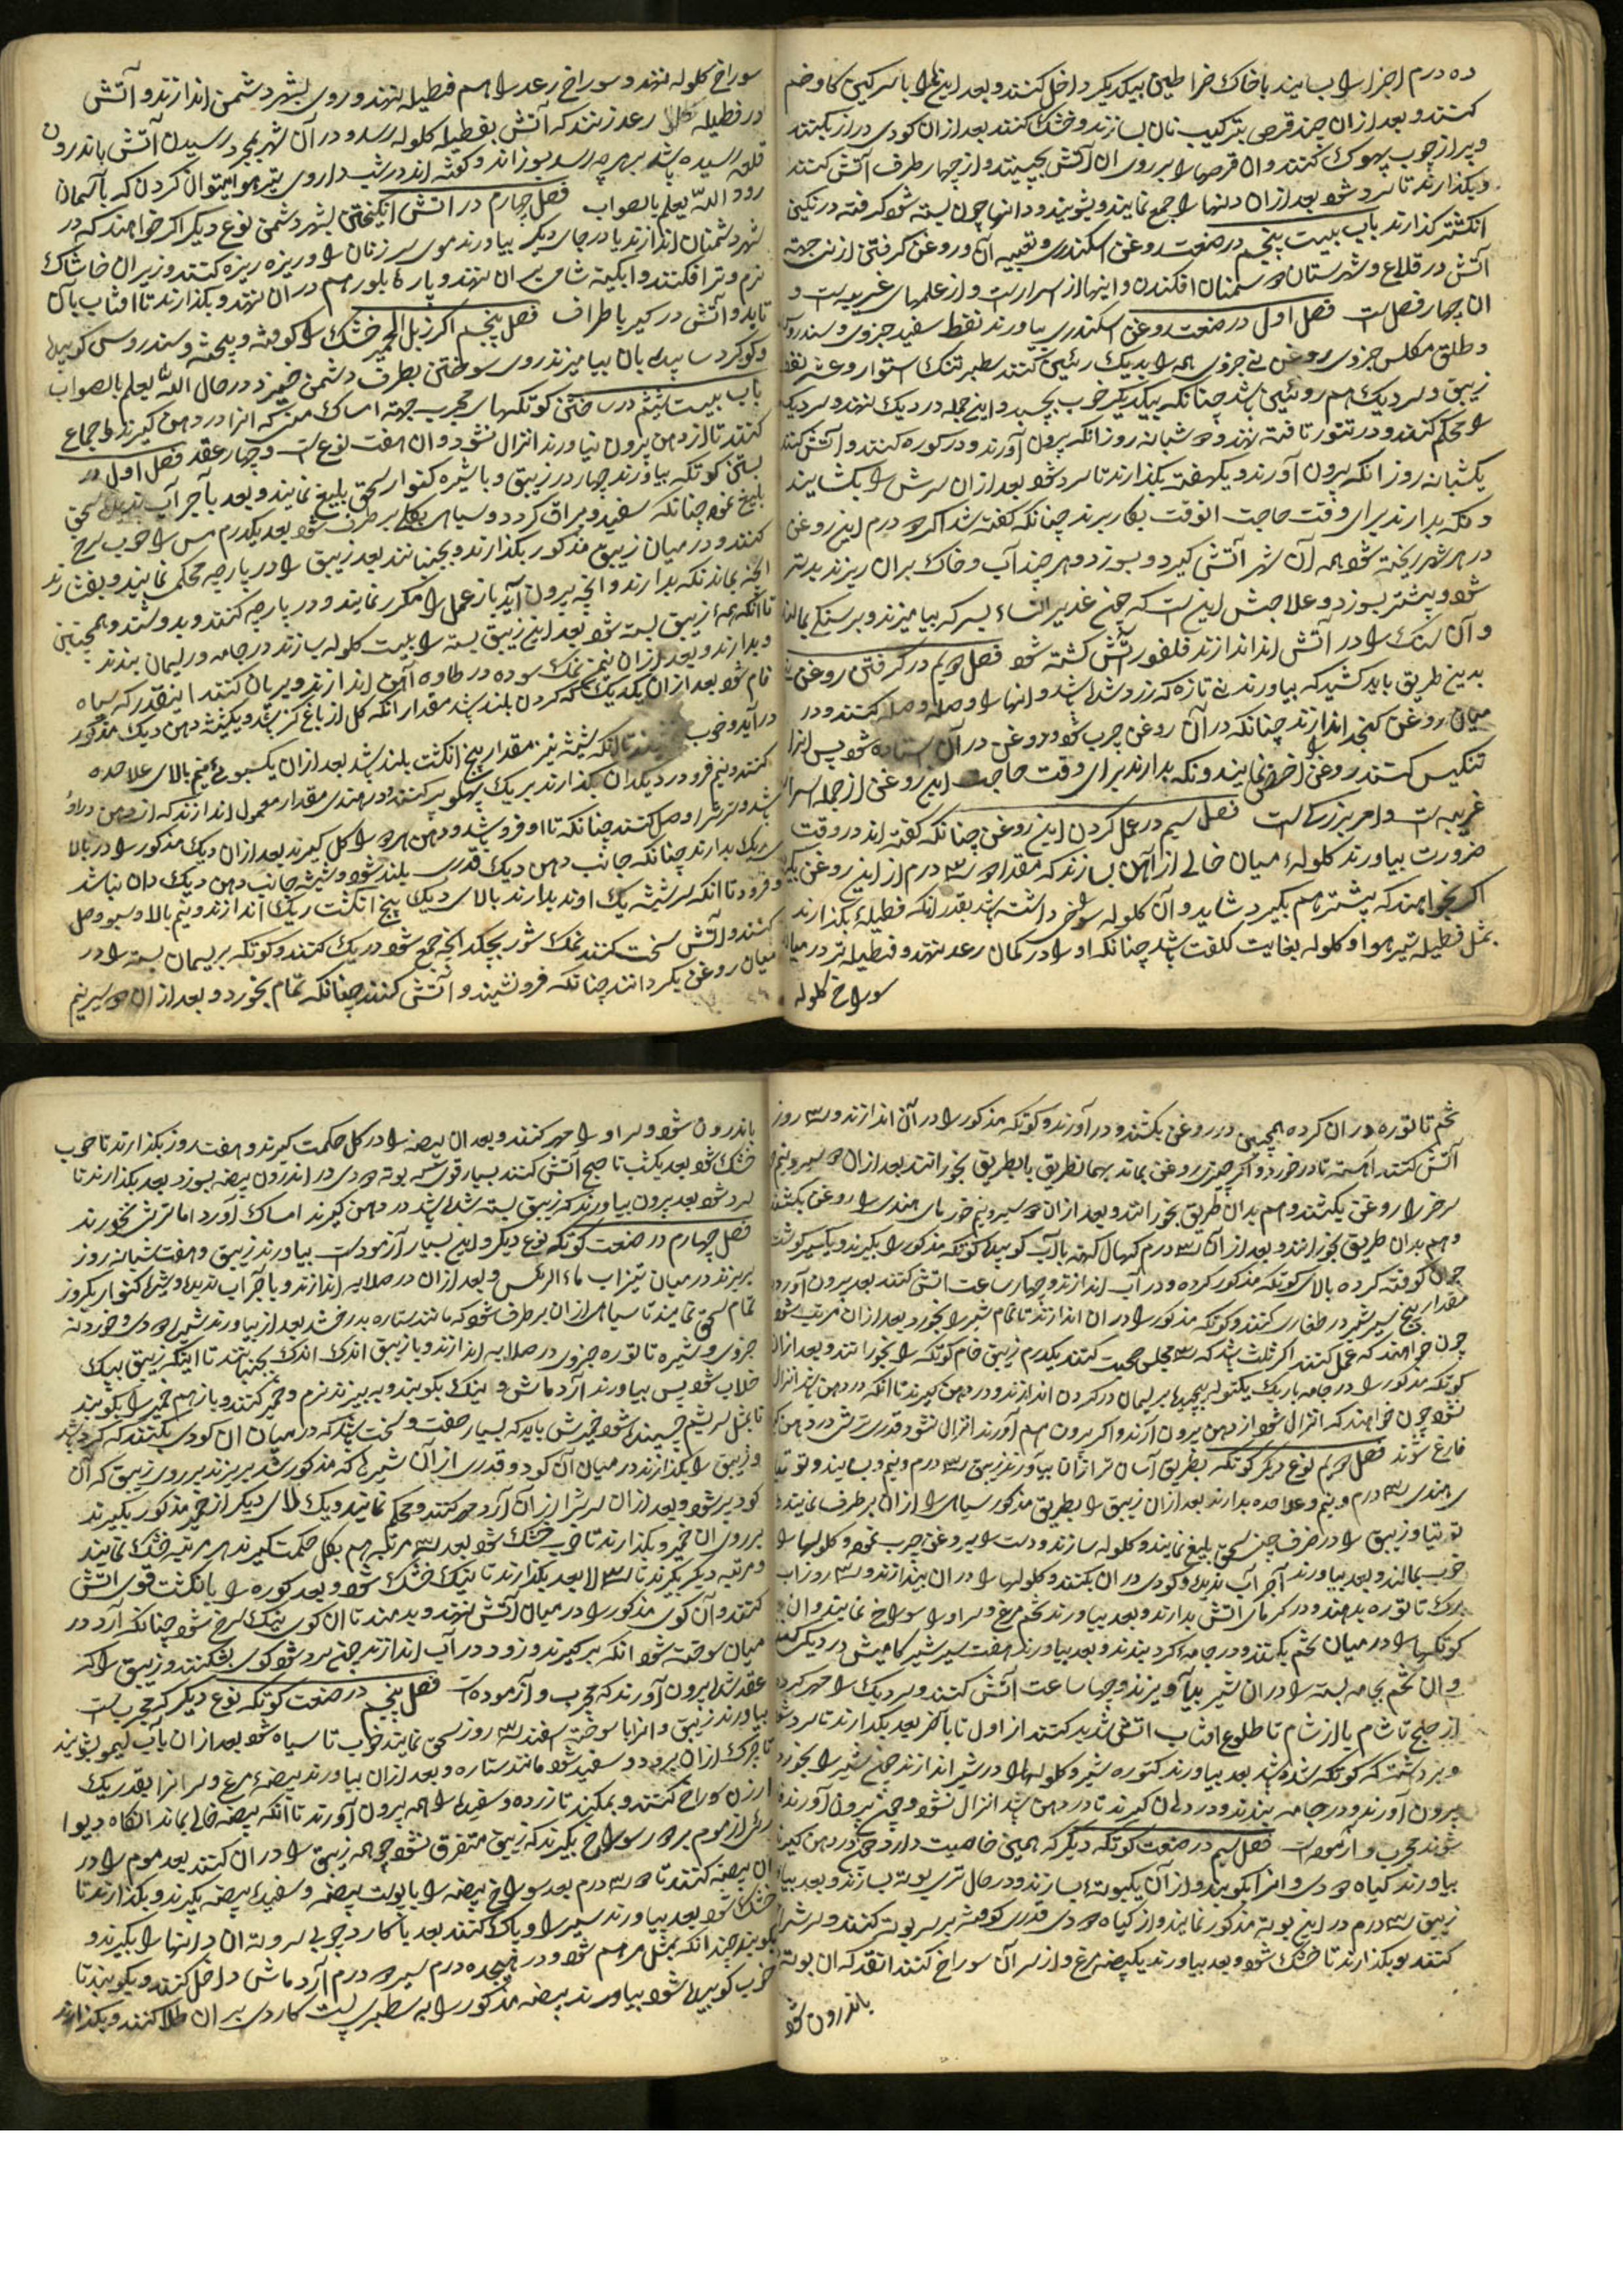 ده درم اجزا را بسایند با خاک خراطین بیکدیگر داخل کنند و بعد اینها را با سرکین کاو ضم
کنند و بعد ازان چند قرص بترکیب نان بسازند و خشک کنند بعد ازان کودی دراز بکنند
و پر از چوب کنند و ان قرصها را بر روی ان آتش بچینند و از چهار طرف آتش کنند
و بکذارند تا سرد شود بعد ازان دنها را جمع نمایند و بشویند و دانها چون بسته شود کرفته در نکین
انکشتر کذارند باب بیست پنجم در صنعت روغن اسکندری و تعبیه آن و روغن کرفتن از نی جهة
آتش در قلاع و شهرستان دشمنان افکندن و اینها از اسرارست و از علمهای غریبه است و
ان چهار فصل است فصل اول در صنعت روغن اسکندری بیاورند نفط سفید جزوی و سندروس
و طلق مکلس جزوی روغن نی جزوی همه را بدیک رئین کنند سطبر تنک استوار و عشر نفط
زیبق و سر دیک هم روئین باشد چنانکه بیکدیکر خوب بچسبد و این جمله در دیک نهند و سر دیک
را محکم کنند و در تنور تافته نهند دو شبانه روز انکه برون آورند و در کوره کنند و آتش کنند
یکشبانه روز انکه برون آورند و یکهفته بکذارند تا سرد شود بعد ازان سرش را بکشایند
و نکه بدارند برای وقت حاجت انوقت بکار برند چنانکه کفته شد اکر دو درم این روغن
در هر شهر ریخته شود همه آن شهر آتش کیرد و بسوزد و هر چند آب و خاک بران ریزند بدتر
شود و بیشتر بسوزد و علاجش این است که بسرکه بیامیزند و بر سنکی بمالند
و آن سنک را در آتش اندازند فلفور آتش کشته شود فصل دویم در کرفتن روغن نی
بدین طریق باید کشید که بیاورند نی تازه که زرد شده باشد و انها را وصله وصله کنند و در
میان روغن کنجد اندازند چنانکه در آن روغن چرب شود و روغن در آن استاده شود پس انرا
تنکیس کنند روغن را اخذ نمایند و نکه بدارند برای وقت حاجت این روغن از جمله اسرار
غریبه است و امر بزرک است فصل سیم در عمل کردن این روغن چنانکه کفته اند در وقت
ضرورت بیاورند کلولهٔ میان خالی از آهن بسازند که مقدار دو سه درم از این روغن بکیرد
اکر بخواهند که بیشتر هم بکیرد شاید و آن کلوله سوراخی داشته باشد بقدر انکه فطیلهٔ بکذارند
بمثل فطیله تیر هوا و کلوله بغایت کلفت باشد چنانکه او را در کمان رعد نهند و فطیله تر در میان
سوراخ کلوله
سوراخ کلوله نهند و سوراخ رعد را هم فطیله نهند و روی بشهر دشمن اندازند و آتش
در فطیله رعد زنند که آتش بفطیله کلوله رسد و در آن شهر بمجرد رسیدن آتش باندرون
قلعه رسیده باشد بر هر چه رسد بسوزاند و کفته اند در شب داروی تیر هوا میتوان کردن که بآسمان
رود الله یعلم بالصواب فصل چهارم در آتش انکیختن بشهر دشمن نوع دیکر اکر خواهند که در
شهر دشمنان اندازند یا در جای دیکر بیاورند موی سر زنان را و ریزه ریزه کنند و زیر ان خاشاک
نرم و تر افکنند و ابکینه شامی بران نهند و پارهٔ بلور هم در ان نهند و بکذارند تا افتاب بآن
تابد و آتش در کیر باطراف فصل پنجم اکر زبل الحمیر خشک را کوفته و بیخته و سندروس کوبیده
و کوکرد سابیده بان بیامیزند روی سوختن بطرف دشمن خیزد در حال الله یعلم بالصواب
باب بیست ششم در ساختن کوتکهای مجرب جهة امساک منی که انرا در دهن کیرند و جماع
کنند تا از دهن بیرون نیاورند انزال نشود و ان هفت نوع است و چهار عقد فصل اول در
بستن کوتکه بیاورند چهار درم زیبق و با شیره کنوار سحق بلیغ نمایند و بعد بآجر آب ندیده سحق
بلیغ نمود چنانکه سفید و براق کردد و سیاهی بکلی برطرف شود بعد یکدرم مس را خوب سرخ
کنند و در میان زیبق مذکور بکذارند و بجنبانند بعد زیبق را در پارچه محکم نمایند و بفشارند
انچه بماند نکه بدارند و انچه بیرون آید باز عمل را مکرر نمایند و در پارچه کنند و بدوشند و همچنین
تا انکه همهٔ زیبق بسته شود بعد این زیبق بسته را بیست کلوله بسازند در جامه و ریسمان بندند
و بدارند و بعد ازان نیم من نمک سوده در طاوه آهن اندازند و بریان کنند اینقدر که سیاه
فام شود بعد ازان یکدیک که کردن بلند باشد مقدار انکه کل از باغ کنند و یکشیشه دهن دیک مذکور
درآید و خوب بنشیند تا انکه شیشه نیز مقدار پنج انکشت بلند باشد بعد ازان یکسبوی نیم بالای علاحده
کنند و نیم فرو در دیکدان بکذارند بریک پر کنند و در هندی مقدار معمول اندازند که از دهن در او
باشد و سر شرا وصل کنند چنانکه تا او فرو شد و دهن هر دو را کل کیرند بعد ازان دیک مذکور را در بالا
ریک بدارند چنانکه جانب دهن دیک قدری بلند شود و شیشه جانب دهن دیک دان باشد
و فرود تا انکه سر شیشه یک اوند بدارند بالای دیک پنج انکشت ریک اندازند و نیم بالا و سبو وصل
کنند و آتش سخت کنند نمک شور بچکد انچه جمع شود در یک کنند و کوتکه بریسمان بسته را در
میان روغن بکردانند چنانکه فرو نشیند و آتش کنند چنانکه تمام بخورد و بعد ازان دو سیر نیم
تخم تاتوره در ان کرده همچنین در روغن بکشند و درآورند و کوتکه مذکور را در آن اندازند و سه روز
آتش کنند اهسته تا در خورد و اکر چیزی روغن بماند بهمانطریق بخورانند بعد ازان دو سیر و نیم
سرخر را روغن بکشند و هم بدان طریق بخورانند و بعد ازان دو سیر و نیم خورمای هندی را روغن بکشند
و هم بدان طریق بخورانند و بعد از آن سه درم کهال کهنه بآب کوبیده کوتکه مذکور را بکیرند و یکسیر کوشت
چوان کوفته کرده بالای کوتکه مذکور کرده و در آب اندازند و چهار ساعت آتش کنند بعد بیرون آورند
مقدار پنج سیر شیر در طغاری کنند و کوتکه مذکور را در ان اندازند تا تمام شیر را بخورد و بعد ازان مرتب شود
چون خواهند که عمل کنند اکر ثلث باشد که سه مجلس صحبت کنند یکدرم زیبق خام کوتکه را بخورانند و بعد ازان
کوتکه مذکور را در جامه باریک یکتو پیچیده بریسمان در کردن اندازند و در دهن کیرند تا انکه در دهن باشد انزال
نشود چون خواهند که انزال شود از دهن بیرون آرند و اکر بیرون هم آورند انزال نشود قدری ترشی در دهن کیرند
فارغ شوند فصل دویم نوع دیکر کوتکه بطریق آسان تر ازان بیآورند زیبق سه درم و نیم و بسایند و توتیا
ی هندی سه درم و نیم و علاحده بدارند بعد ازان زیبق را بطریق مذکور سیاهی را ازان برطرف نمایند و
توتیا و زیبق را در ظرف چینی سحق بلیغ نمایند و کلوله سازند و دست را بروغن چرب نمود و کلولها را
خوب بمالند و بعد بیاورند آجر آب ندیده و کودی در ان بکنند و کلولها را در ان بیندازند و سه روز اب
برک تاتوره بدهند و در کرمای آتش بدارند و بعد بیاورند تخم مرغ و سر او را سوراخ نمایند و ان
کوتکها را در میان تخم بکنند و در جامهٔ کرد بندند و بعد بیاورند هفت سیر شیر کامیش در دیک کنند
و ان تخم بجامه بسته را در ان شیر بیآویزند و چهار ساعت آتش کنند و سر دیک را مهر کرده
از صبح تا شام یا از شام تا طلوع افتاب آتش شدید کنند از اول تا بآخر بعد بکذارند تا سرد شود
و بردشته که کوتکه شده باشد بعد بیاورند کتوره شیر و کلولها را در شیر اندازند چون شیر را بخورد
بیرون آورند و در جامه ببندند و در دهان کیرند تا در دهن باشد انزال نشود و چون بیرون آورند
شوند مجرب و آزموده است فصل سیم در صنعت کوتکه دیکر که همین خاصیت دارد چون در دهن کیرند
بیاورند کیاه دودی و انرا بکوبند و از آن یکبوتهٔ بسازند و در حال تری بوته بسازند و بعد بیاورند
زیبق سه درم در این بوته مذکور نمایند و از کیاه دودی قدری کوفته بر سر بوته کنند و سرشرا
کنند و بکذارند تا خشک شود و بعد بیاورند یکبیضه مرغ و از سر آن سوراخ کنند انقدر که ان بوته
باندرون شود
باندرون شود و سر او را مهر کنند و بعد ان بیضه را در کل حکمت کیرند و هفت روز بکذارند تا خوب
خشک شود بعد یکشب تا صبح آتش کنند بسیار قوی که بوته دودی در اندرون بیضه بسوزد بعد بکذارند تا
سرد شود بعد برون بیاورند که زیبق بسته شده باشد در دهن کیرند امساک آورد اما ترش نخورند
فصل چهارم در صنعت کوتکه نوع دیکر و این بسیار آزموده است بیاورند زیبق و هفت شبانه روز
بریزند در میان تیزاب ماء الرئس و بعد ازان در صلایه اندازند و با آجر آب ندیده و شیرهٔ کنوار یکروز
تمام سحق نمایند تا سیاهی ازان برطرف شود که مانند ستاره بدرخشد بعد از بیاورند شیره دودی خوردنه
جزوی و شیره تاتوره جزوی در صلایه اندازند و با زیبق اندک اندک بجنبانند تا اینکه زیبق بیک
خلاب شود پس بیاورند آرد ماش و نیک بکوبند و ببیزند نرم و خمیر کنند و باز هم خمیر را بکوبند
تا بمثل سریشم چسبنده شود خمیرش باید که بسیار صفت و سخت باشد که در میان ان کودی بکنند که کرد باشد
و زیبق را بکذارند در میان آن کود و قدری از آن شیرهای که مذکور شد بریزند بر روی زیبق که آن
کود پر شود و بعد ازان سرشرا ازان آرد مهر کنند و محکم نمایند و یک لای دیکر از خمیر مذکور بکیرند
بر روی ان خمیر و بکذارند تا خوب خشک شود بعد سه مرتبه هم بکل حکمت کیرند هر مرتبه خشک نمایند
و مرتبه دیکر بکیرند تا سه لا بعد بکذارند تا نیک خشک شود و بعد کوره را بانکشت قوی آتش
کنند و آن کوی مذکور را در میان آتش نهند و بدمند تا ان کوی نیک سرخ شود چنانکه آرد در
میان سوخته شود انکه برکیرند و زود در آب اندازند چون سرد شود کوی بشکنند و زیبق را که
عقد شده بیرون آورند که مجرب و آزموده است فصل پنجم در صنعت کوتکه نوع دیکر که مجرب است
بیاورند زیبق و انرا با سوخته اسفند سه روز سحق نمایند خوب تا سیاه شود بعد ازان بآب لیمو بشویند
تا چرک ازان برود و سفید شود مانند ستاره و بعد ازان بیاورند بیضهٔ مرغ و سر انرا بقدر یک
ارزن سوراخ کنند و بمکند تا زرده و سفیده را همه بیرون آورند تا انکه بیضه خالی بماند انکاه دیوا
ری از موم بر دور سوراخ بکیرند که زیبق متفرق نشود چو همه زیبق را در ان کنند بعد موم را در
ان بیضه کنند تا دو سه درم بعد سوراخ بیضه را با پوست بیضه و سفیدهٔ بیضه بکیرند و بکذارند تا
خشک شود بعد بیاورند سیر او پاک کنند بعد با کارد چوبی سر و ته ان دانها را بکیرند و
بکوبند چندانکه بمثل مرهم شود و در پنجده درم سیر دو درم آرد ماش داخل کنند و بکوبند تا
خوب کوبیده شود بیاورند بیضه مذکور را به سطبری پشت کاردی بر ان طلا کنند و بکذارند